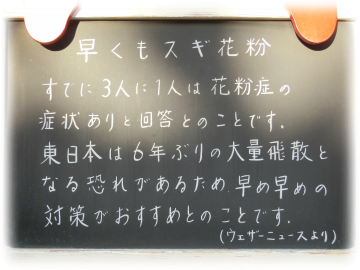 早くもスギ花粉
すでに3人に1人は花粉症の
症状ありと回答とのことです.
東日本は6年ぶりの大量飛散と
なる恐れがあるため.早め早めの
対策がおすすめとのことです.
(ウェザーニュースより)